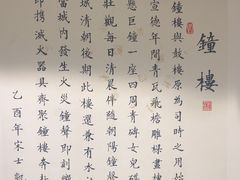 鐘樓
鐘樓與鼓樓原為司時之用始
宣德年間青瓦飛檐雕樑畫
懸巨鐘一座四周青磚女兒
壯觀每日清晨伴隨朝陽鐘聲
城清朝後期此樓選兼有水
當城内發生火災鐘聲即刻
即携滅火器具齊聚鐘樓奔赴
乙酉年宋士